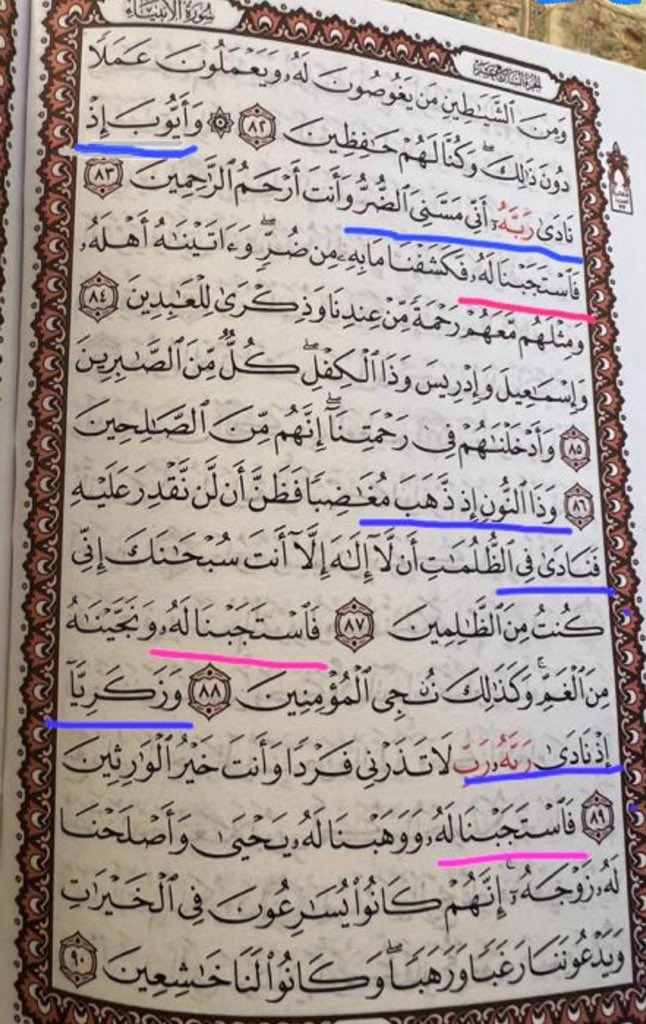 سُورَةُ الأَنبِيَاءِ
الجزء السابع عشر
وَمِنَ ٱلشَّيَـٰطِينِ مَن يَغُوصُونَ لَهُۥ وَيَعۡمَلُونَ عَمَلًا
دُونَ ذَٰلِكَۖ وَكُنَّا لَهُمۡ حَـٰفِظِينَ ٨٢ ۞ وَأَيُّوبَ إِذۡ
نَادَىٰ رَبَّهُۥٓ أَنِّي مَسَّنِيَ ٱلضُّرُّ وَأَنتَ أَرۡحَمُ ٱلرَّٰحِمِينَ ٨٣
فَٱسۡتَجَبۡنَا لَهُۥ فَكَشَفۡنَا مَا بِهِۦ مِن ضُرّٖۖ وَءَاتَيۡنَـٰهُ أَهۡلَهُۥ
وَمِثۡلَهُم مَّعَهُمۡ رَحۡمَةٗ مِّنۡ عِندِنَا وَذِكۡرَىٰ لِلۡعَـٰبِدِينَ ٨٤
وَإِسۡمَـٰعِيلَ وَإِدۡرِيسَ وَذَا ٱلۡكِفۡلِۖ كُلّٞ مِّنَ ٱلصَّـٰبِرِينَ
٨٥ وَأَدۡخَلۡنَـٰهُمۡ فِي رَحۡمَتِنَآۖ إِنَّهُم مِّنَ ٱلصَّـٰلِحِينَ
٨٦ وَذَا ٱلنُّونِ إِذ ذَّهَبَ مُغَـٰضِبٗا فَظَنَّ أَن لَّن نَّقۡدِرَ عَلَيۡهِ
فَنَادَىٰ فِي ٱلظُّلُمَـٰتِ أَن لَّآ إِلَـٰهَ إِلَّآ أَنتَ سُبۡحَـٰنَكَ إِنِّي
كُنتُ مِنَ ٱلظَّـٰلِمِينَ ٨٧ فَٱسۡتَجَبۡنَا لَهُۥ وَنَجَّيۡنَـٰهُ
مِنَ ٱلۡغَمِّۚ وَكَذَٰلِكَ نُـۨجِي ٱلۡمُؤۡمِنِينَ ٨٨ وَزَكَرِيَّآ
إِذۡ نَادَىٰ رَبَّهُۥ رَبِّ لَا تَذَرۡنِي فَرۡدٗا وَأَنتَ خَيۡرُ ٱلۡوَٰرِثِينَ
٨٩ فَٱسۡتَجَبۡنَا لَهُۥ وَوَهَبۡنَا لَهُۥ يَحۡيَىٰ وَأَصۡلَحۡنَا
لَهُۥ زَوۡجَهُۥٓۚ إِنَّهُمۡ كَانُواْ يُسَـٰرِعُونَ فِي ٱلۡخَيۡرَٰتِ
وَيَدۡعُونَنَا رَغَبٗا وَرَهَبٗاۖ وَكَانُواْ لَنَا خَـٰشِعِينَ ٩٠